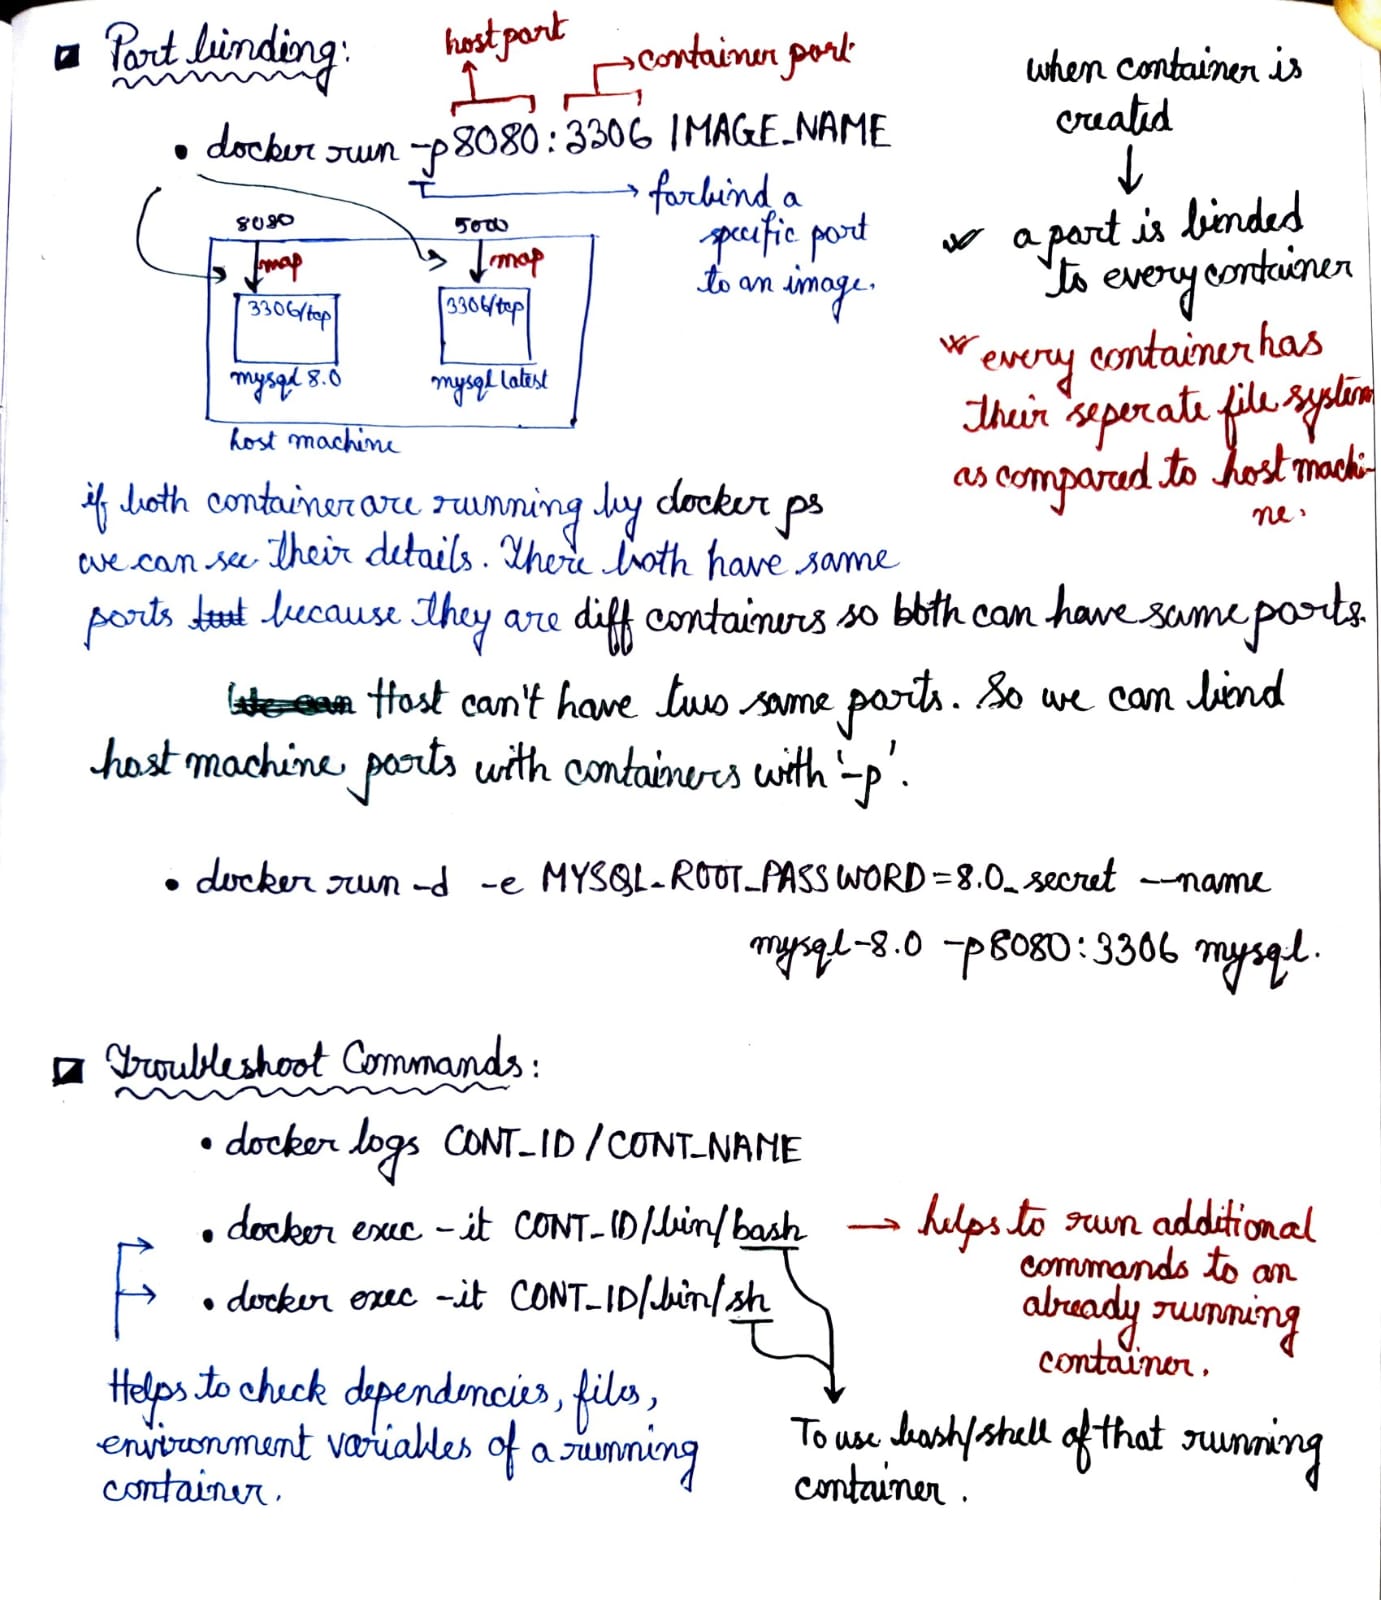 Port binding:
host port
container port
• docker run -p 8080 : 3306 IMAGE_NAME
for bind a
specific port
to an image.
8080
5000
map
map
3306/tcp
3306/tcp
mysql 8.0
mysql latest
host machine
when container is
created
a port is binded
to every container
every container has
their seperate file system
as compared to host machi-
ne.
if both container are running by docker ps
we can see their details. There both have same
ports because they are diff containers so both can have same ports.
Host can't have two same ports. So we can bind
host machine ports with containers with '-p'.
• docker run -d -e MYSQL_ROOT_PASSWORD=8.0_secret --name
mysql-8.0 -p8080:3306 mysql.
Troubleshoot Commands:
• docker logs CONT_ID / CONT_NAME
• docker exec -it CONT_ID/bin/bash
• docker exec -it CONT_ID/bin/sh
helps to run additional
commands to an
already running
container.
Helps to check dependencies, files,
environment variables of a running
container.
To use bash/shell of that running
container.